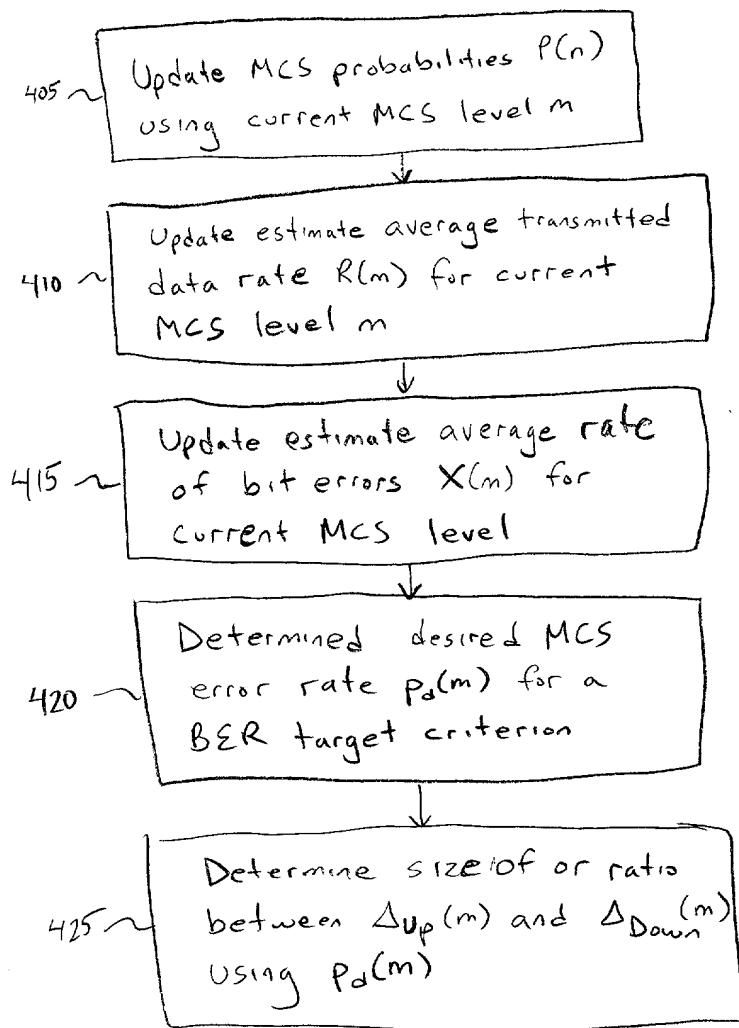 405
Update MCS probabilities P(n)
using current MCS level m
410
Update estimate average transmitted
data rate R(m) for current
MCS level m
415
Update estimate average rate
of bit errors X(m) for
current MCS level
420
Determined desired MCS
error rate pd(m) for a
BER target criterion
425
Determine size of or ratio
between ΔUp(m) and ΔDown(m)
using pd(m)